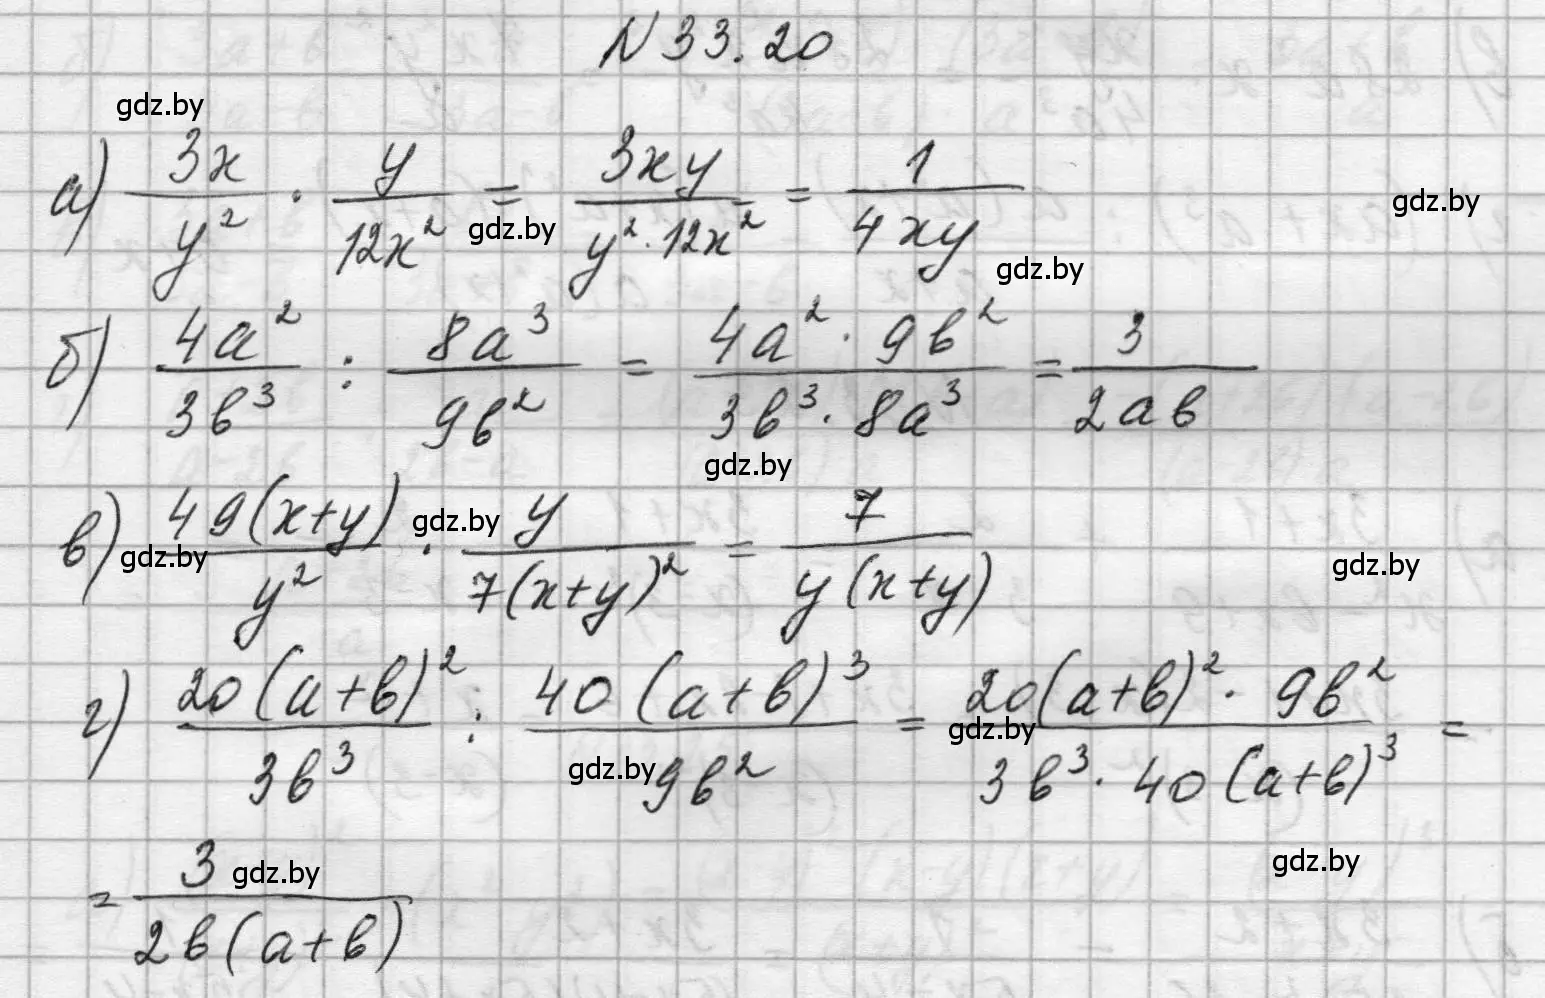 N 33.20
gdz.by
а) 3x/y² · y/12x² = 3xy/y²·12x² = 1/4xy
gdz.by
gdz.by
gdz.by
б) 4a²/3b³ : 8a³/9b² = 4a²·9b²/3b³·8a³ = 3/2ab
gdz.by
в) 49(x+y)/y² · y/7(x+y)² = 7/y(x+y)
gdz.by
gdz.by
gdz.by
г) 20(a+b)²/3b³ : 40(a+b)³/9b² = 20(a+b)²·9b²/3b³·40(a+b)³ =
gdz.by
gdz.by
= 3/2b(a+b)
gdz.by
gdz.by